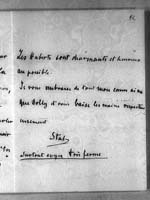 Les Raberts sont charmants et heureux
au possible.
Je vous embrasse de tout mon cœur ainsi
que Dolly et vous baise les mains respectu
eusement
Stab,
Surtout soyez très ferme